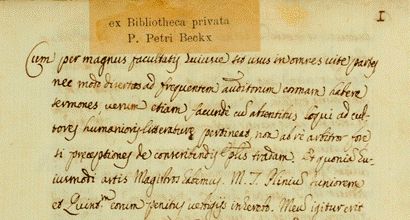 1
ex Bibliotheca privata
P. Petri Beckx
Cum per magnus facultatis huiusce sit usus in omnes vitę partes
nec modo disertos ad frequentem auditorum coronam habere
sermones, verum etiam facunde cū absentibus loqui ad cul-
tores humanioris literaturę pertineat non ab re arbitror fore
si pręceptiones de conscribendis tradam. Et quoniā hu-
iusmodi artis Magistros habemus. M. T. Plinium iuniorem
et Quint. eorum penitus vestigiis inhęrebo. Meū igitur erit